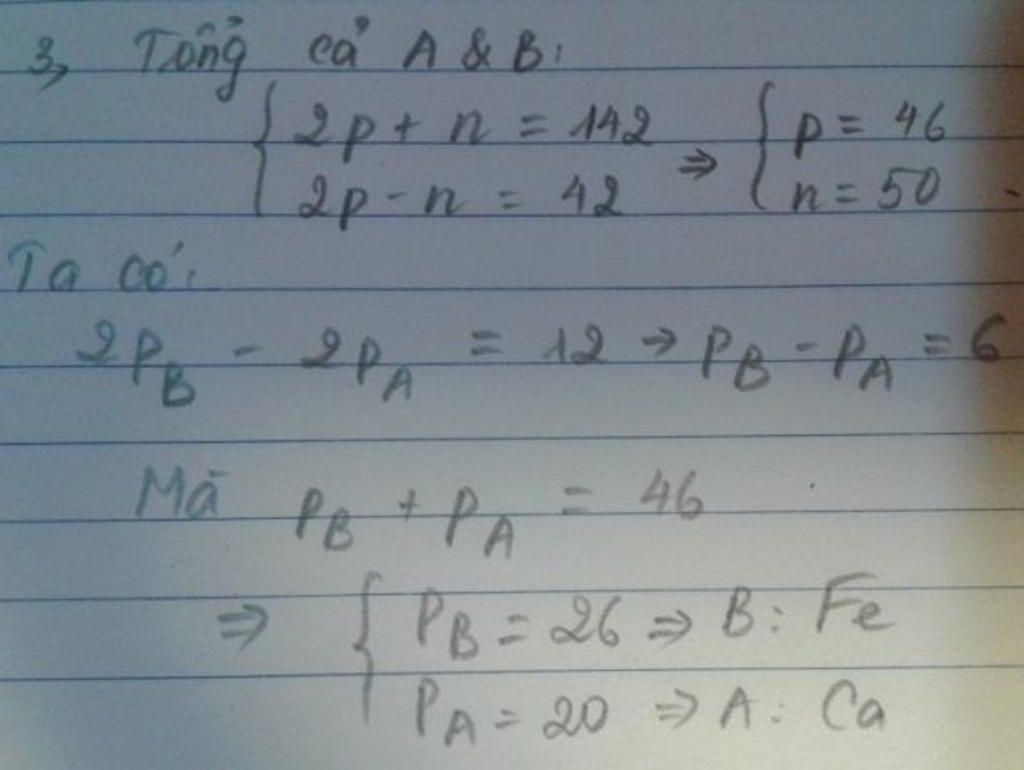 3, Tổng cả A & B:
{ 2p + n = 142 ⇒ { p = 46
2p - n = 42 n = 50
Ta có:
2p_B - 2p_A = 12 → p_B - p_A = 6
Mà p_B + p_A = 46
⇒ { p_B = 26 ⇒ B: Fe
p_A = 20 ⇒ A: Ca